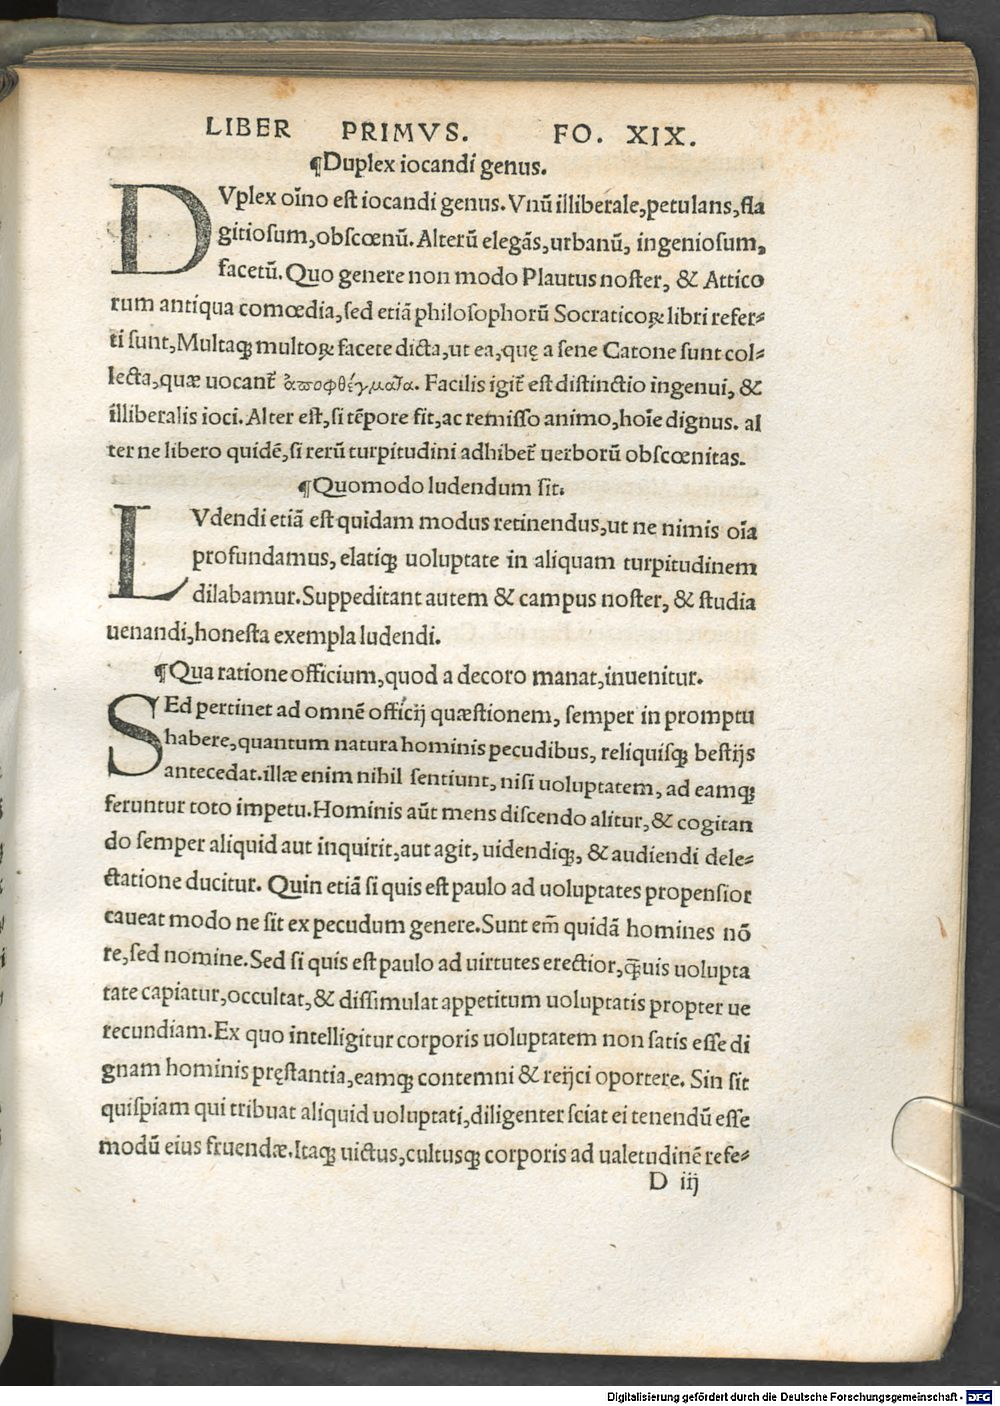 LIBER PRIMVS. FO. XIX.
¶Duplex iocandi genus.
DVplex oīno est iocandi genus. Vnū illiberale, petulans, fla
gitiosum, obscœnū. Alterū elegãs, urbanū, ingeniosum,
facetū. Quo genere non modo Plautus noster, & Attico
rum antiqua comœdia, sed etiã philosophorū Socraticoꝝ libri refer⸗
ti sunt, Multaqꝫ multoꝝ facete dicta, ut ea, quę a sene Catone sunt col⸗
lecta, quæ uocant᷑ ἀποφθέγματα. Facilis igit᷑ est distinctio ingenui, &
illiberalis ioci. Alter est, si tēpore fit, ac remisso animo, hoīe dignus. al
ter ne libero quidē, si rerū turpitudini adhibet᷑ uerborū obscœnitas.
¶Quomodo ludendum sit.
LVdendi etiã est quidam modus retinendus, ut ne nimis oīa
profundamus, elatiqꝫ uoluptate in aliquam turpitudinem
dilabamur. Suppeditant autem & campus noster, & studia
uenandi, honesta exempla ludendi.
¶Qua ratione officium, quod a decoro manat, inuenitur.
SEd pertinet ad omnē officij quæstionem, semper in promptu
habere, quantum natura hominis pecudibus, reliquisqꝫ bestijs
antecedat. illæ enim nihil sentiunt, nisi uoluptatem, ad eamqꝫ
feruntur toto impetu. Hominis aūt mens discendo alitur, & cogitan
do semper aliquid aut inquirit, aut agit, uidendiqꝫ, & audiendi dele⸗
ctatione ducitur. Quin etiã si quis est paulo ad uoluptates propensior
caueat modo ne sit ex pecudum genere. Sunt em̄ quidã homines nō
re, sed nomine. Sed si quis est paulo ad uirtutes erectior, q̄uis uolupta
tate capiatur, occultat, & dissimulat appetitum uoluptatis propter ue
recundiam. Ex quo intelligitur corporis uoluptatem non satis esse di
gnam hominis pręstantia, eamqꝫ contemni & reijci oportere. Sin sit
quispiam qui tribuat aliquid uoluptati, diligenter sciat ei tenendū esse
modū eius fruendæ. Itaqꝫ uictus, cultusqꝫ corporis ad ualetudinē refe⸗
D iij
Digitalisierung gefördert durch die Deutsche Forschungsgemeinschaft - DFG